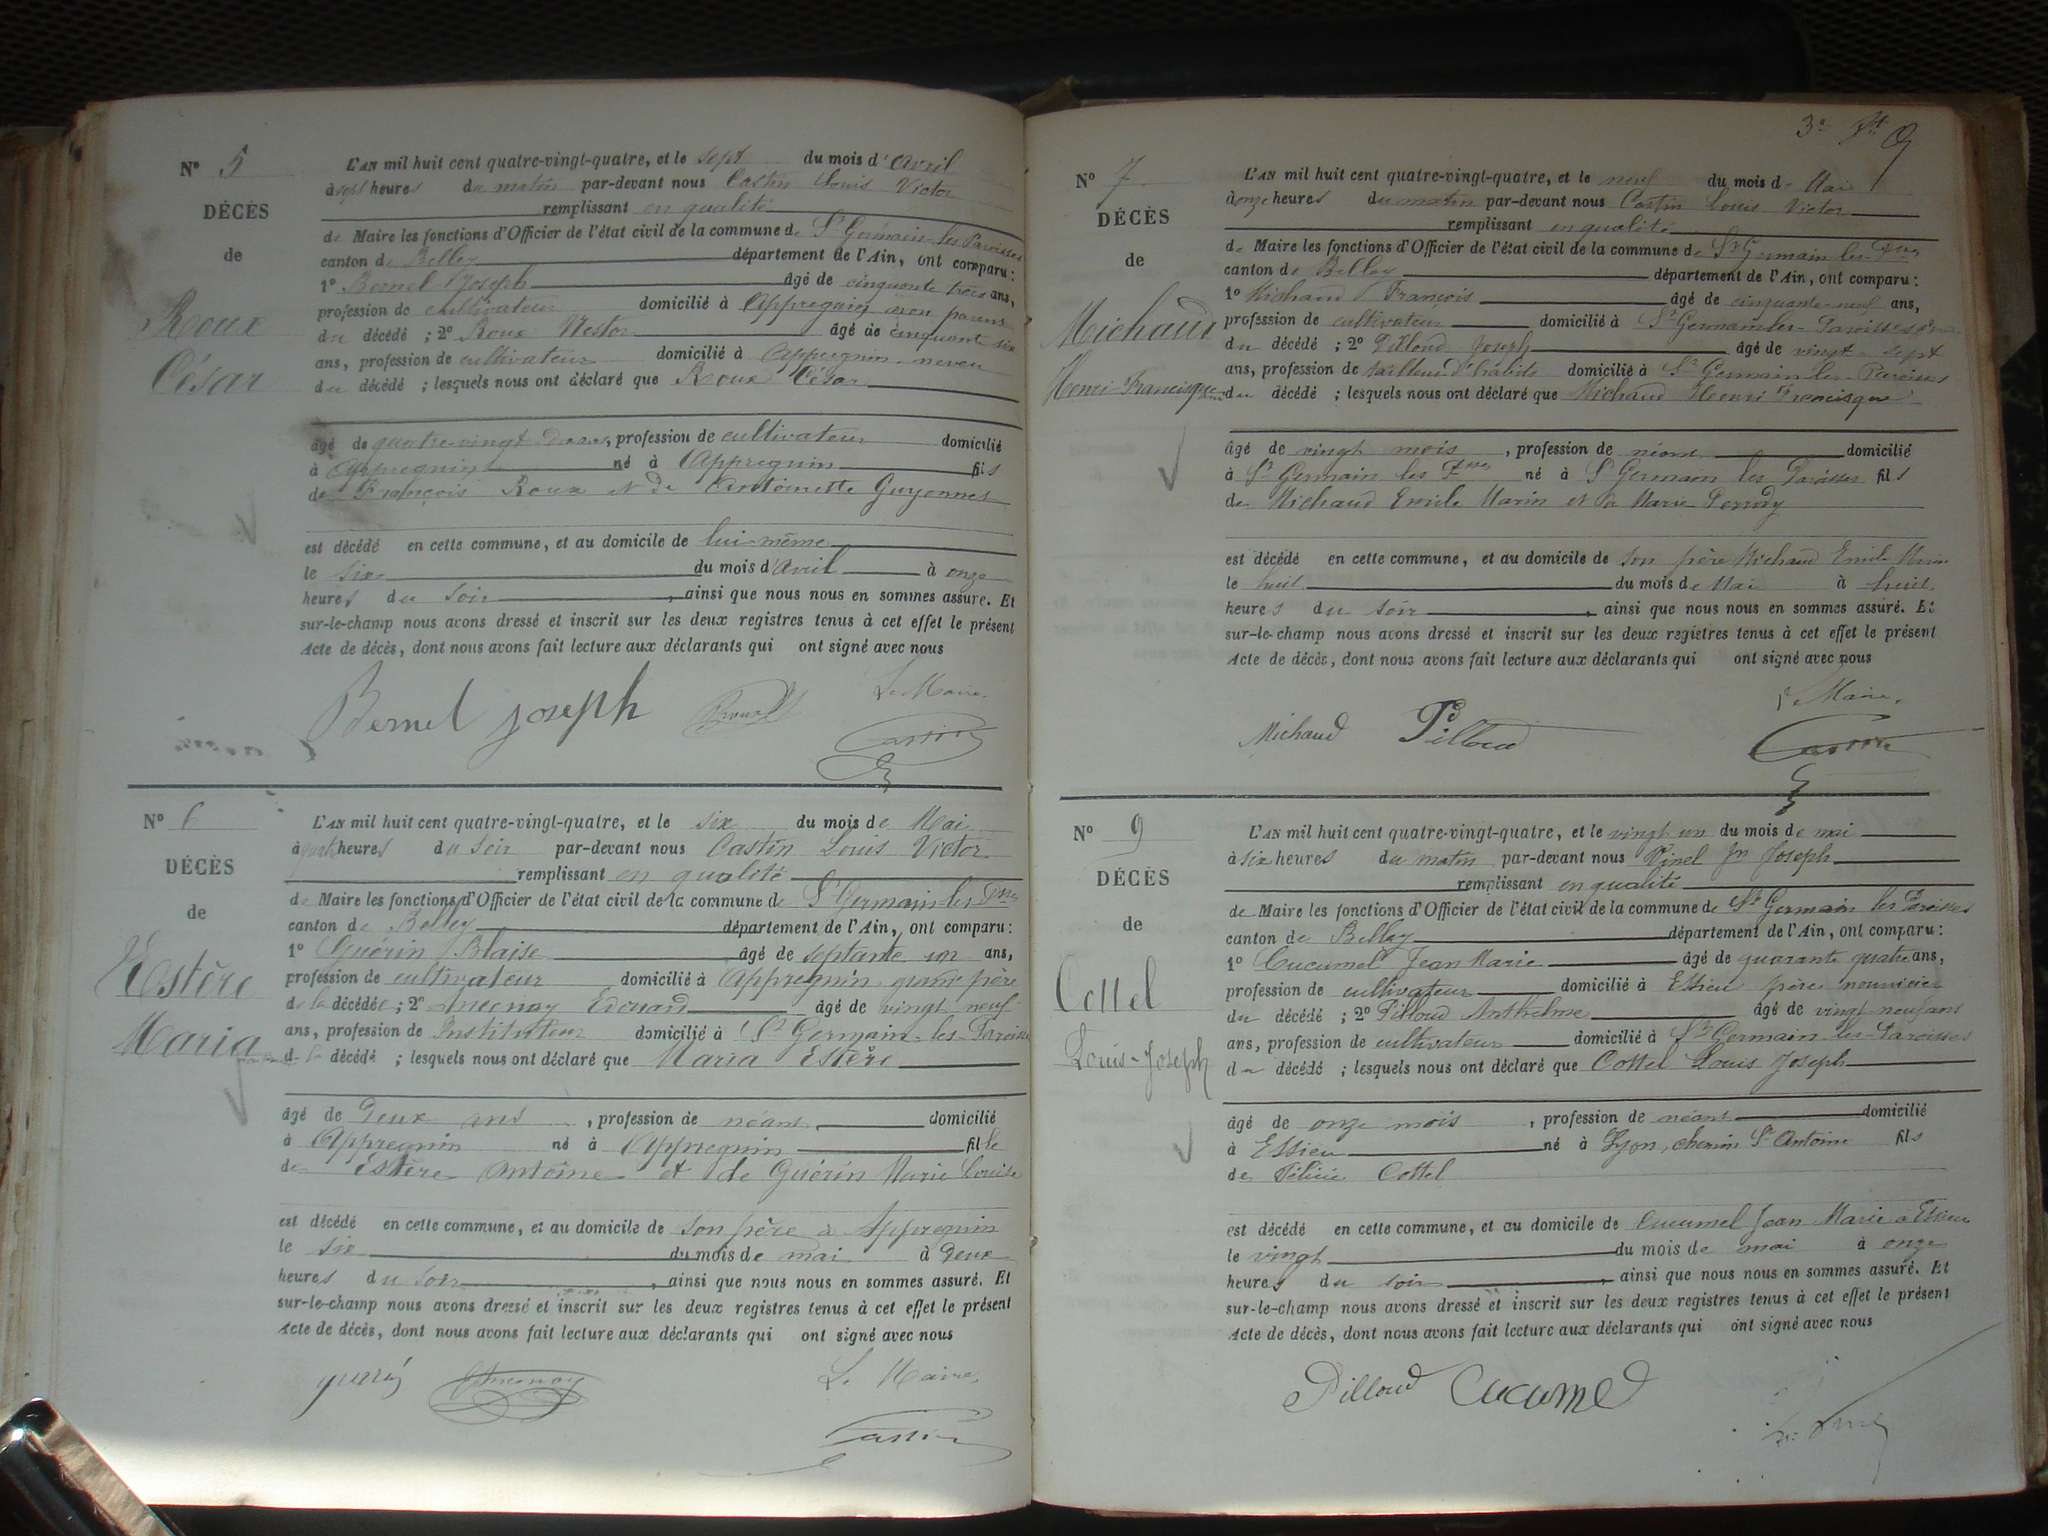 N° 5
DÉCÈS
de
Roux
César
L'AN mil huit cent quatre-vingt-quatre, et le sept du mois d'Avril
à sept heures du matin par-devant nous Castin Louis Victor
remplissant en qualité
de Maire les fonctions d'Officier de l'état civil de la commune de St Germain-les-Paroisses
canton de Belley département de l'Ain, ont comparu :
1° Bernel Joseph âgé de cinquante trois ans,
profession de cultivateur domicilié à Appregnin non parent
du décédé ; 2° Roux Nestor âgé de cinquante six
ans, profession de cultivateur domicilié à Appregnin neveu
du décédé ; lesquels nous ont déclaré que Roux César
âgé de quatre-vingt , profession de cultivateur domicilié
à Appregnin né à Appregnin fils
de François Roux et de Antoinette Guyonnet
est décédé en cette commune, et au domicile de lui-même
le six du mois d'Avril à onze
heures du soir , ainsi que nous nous en sommes assuré. Et
sur-le-champ nous avons dressé et inscrit sur les deux registres tenus à cet effet le présent
Acte de décès, dont nous avons fait lecture aux déclarants qui ont signé avec nous
Le Maire,
Bernel joseph Roux Castin
N° 6
DÉCÈS
de
Estère
Maria
L'AN mil huit cent quatre-vingt-quatre, et le six du mois de Mai
à heures du soir par-devant nous Castin Louis Victor
remplissant en qualité
de Maire les fonctions d'Officier de l'état civil de la commune de St Germain-les-Pses
canton de Belley département de l'Ain, ont comparu :
1° Guérin Blaise âgé de septante un ans,
profession de cultivateur domicilié à Appregnin grand père
de la décédée ; 2° Edouard âgé de vingt neuf
ans, profession de Instituteur domicilié à St Germain-les-Paroisses
d la décédé ; lesquels nous ont déclaré que Maria Estère
âgé de Deux ans , profession de néant domicilié
à Appregnin né à Appregnin fille
de Estère Antoine et de Guérin Marie Louise
est décédé en cette commune, et au domicile de son père à Appregnin
le six du mois de mai à Deux
heures du soir , ainsi que nous nous en sommes assuré. Et
sur-le-champ nous avons dressé et inscrit sur les deux registres tenus à cet effet le présent
Acte de décès, dont nous avons fait lecture aux déclarants qui ont signé avec nous
Le Maire,
Castin
3e
N° 7
DÉCÈS
de
Michaud
Henri Francisque
L'AN mil huit cent quatre-vingt-quatre, et le neuf du mois de Mai
à onze heures du matin par-devant nous Castin Louis Victor
remplissant en qualité
de Maire les fonctions d'Officier de l'état civil de la commune de St Germain les Pses
canton de Belley département de l'Ain, ont comparu :
1° Michaud François âgé de cinquante-neuf ans,
profession de cultivateur domicilié à St Germain les-Paroisses
du décédé ; 2° Pilloud Joseph âgé de vingt-sept
ans, profession de tailleur d'habits domicilié à St Germain les-Paroisses
du décédé ; lesquels nous ont déclaré que Michaud Henri Francisque
âgé de vingt mois , profession de néant domicilié
à St Germain les Pses né à St Germain les Paroisses fils
de Michaud Emile Marin et de Marie
est décédé en cette commune, et au domicile de son père Michaud Emile Marin
le huit du mois de Mai à huit
heures du soir , ainsi que nous nous en sommes assuré. Et
sur-le-champ nous avons dressé et inscrit sur les deux registres tenus à cet effet le présent
Acte de décès, dont nous avons fait lecture aux déclarants qui ont signé avec nous
le Maire,
Michaud Pilloud Castin
N° 9
DÉCÈS
de
Cottel
Louis-Joseph
L'AN mil huit cent quatre-vingt-quatre, et le vingt un du mois de mai
à six heures du matin par-devant nous Vinel Jn Joseph
remplissant en qualité
de Maire les fonctions d'Officier de l'état civil de la commune de St Germain les Paroisses
canton de Belley département de l'Ain, ont comparu :
1° Cucumel Jean Marie âgé de quarante quatre ans,
profession de cultivateur domicilié à Essieu père nourricier
du décédé ; 2° Pilloud Anthelme âgé de vingt neuf ans
ans, profession de cultivateur domicilié à St Germain les-Paroisses
du décédé ; lesquels nous ont déclaré que Cottel Louis Joseph
âgé de onze mois , profession de néant domicilié
à Essieu né à Lyon, chemin St Antoine fils
de Félicie Cottel
est décédé en cette commune, et au domicile de Cucumel Jean Marie à Essieu
le vingt du mois de mai à onze
heures du soir , ainsi que nous nous en sommes assuré. Et
sur-le-champ nous avons dressé et inscrit sur les deux registres tenus à cet effet le présent
Acte de décès, dont nous avons fait lecture aux déclarants qui ont signé avec nous
Pilloud Cucumel